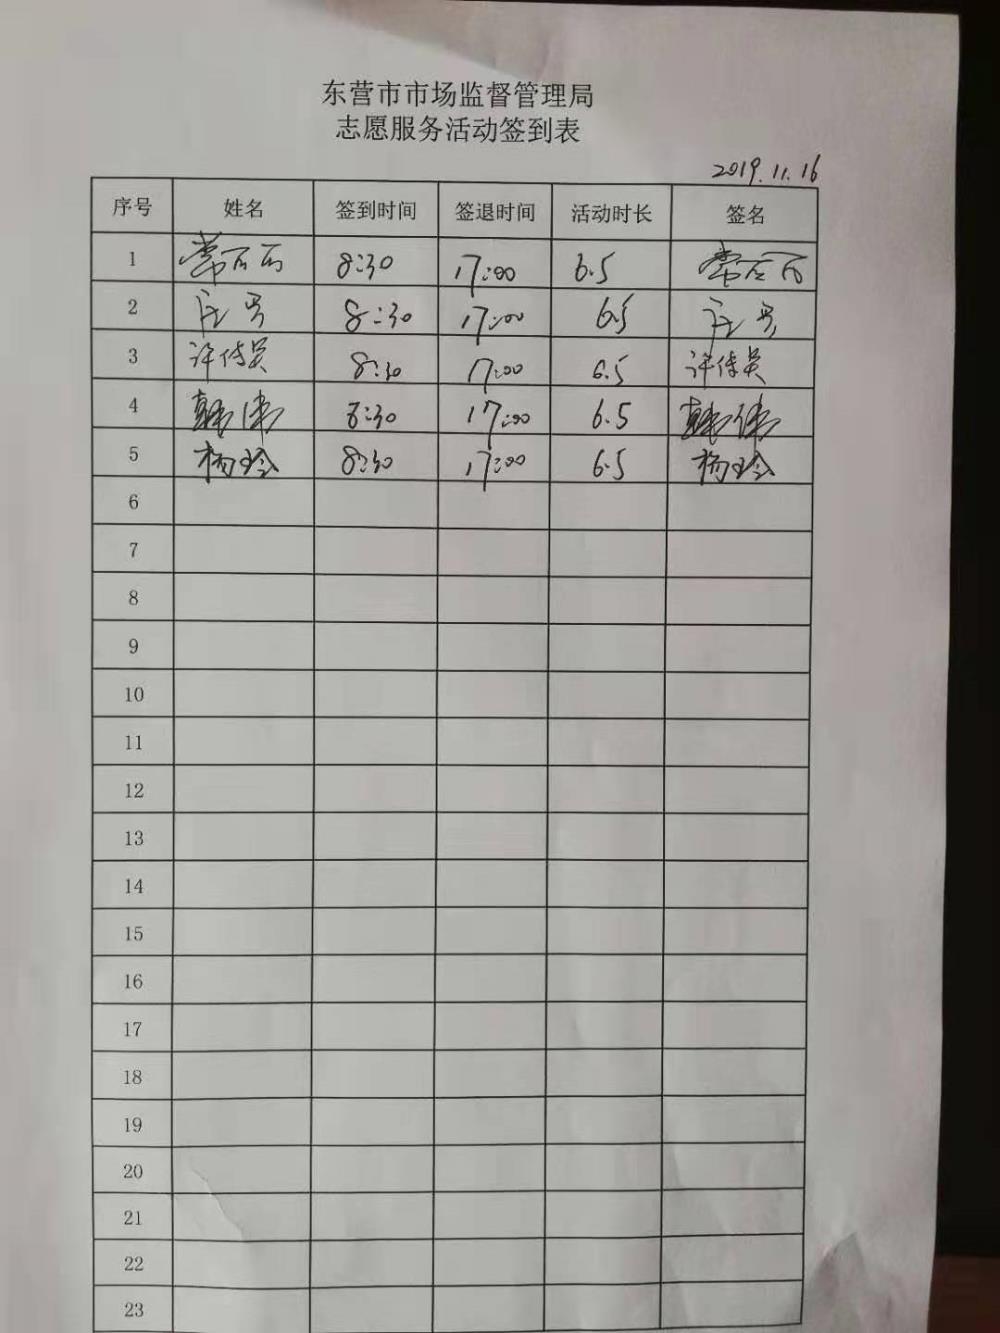 东营市市场监督管理局
志愿服务活动签到表
2019.11.16
序号 姓名 签到时间 签退时间 活动时长 签名
1 8:30 17:00 6.5
2 8:30 17:00 6.5
3 许传英 8:30 17:00 6.5 许传英
4 韩伟 8:30 17:00 6.5 韩伟
5 杨玲 8:30 17:00 6.5 杨玲
6
7
8
9
10
11
12
13
14
15
16
17
18
19
20
21
22
23